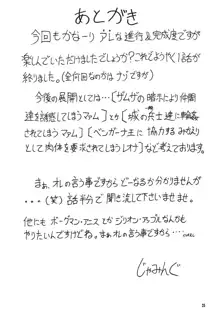 あとがき
今回もかなーりアレな進行&完成度ですが
楽しんでいただけましたでしょうか?これでようやく1話が
終りました。(全何回なのかはナゾですが)
今後の展開としては…[ザムザの暗示により仲間
達を誘惑してしまうマァム]とか[城の兵士達に輪姦
されてしまうマァム][ベンガーナ王に協力するみかえり
として肉体を要求されてしまうレオナ]など考えております。
まぁ、オレの言う事ですからどーなるか分かりませんが
…(笑)話半分で聞き流して下さいませ。
他にもボーグマン・アニスとかジリオン・アップルなんかも
やりたいんですけどね。まぁオレの言う事ですから……
じゃみんぐ